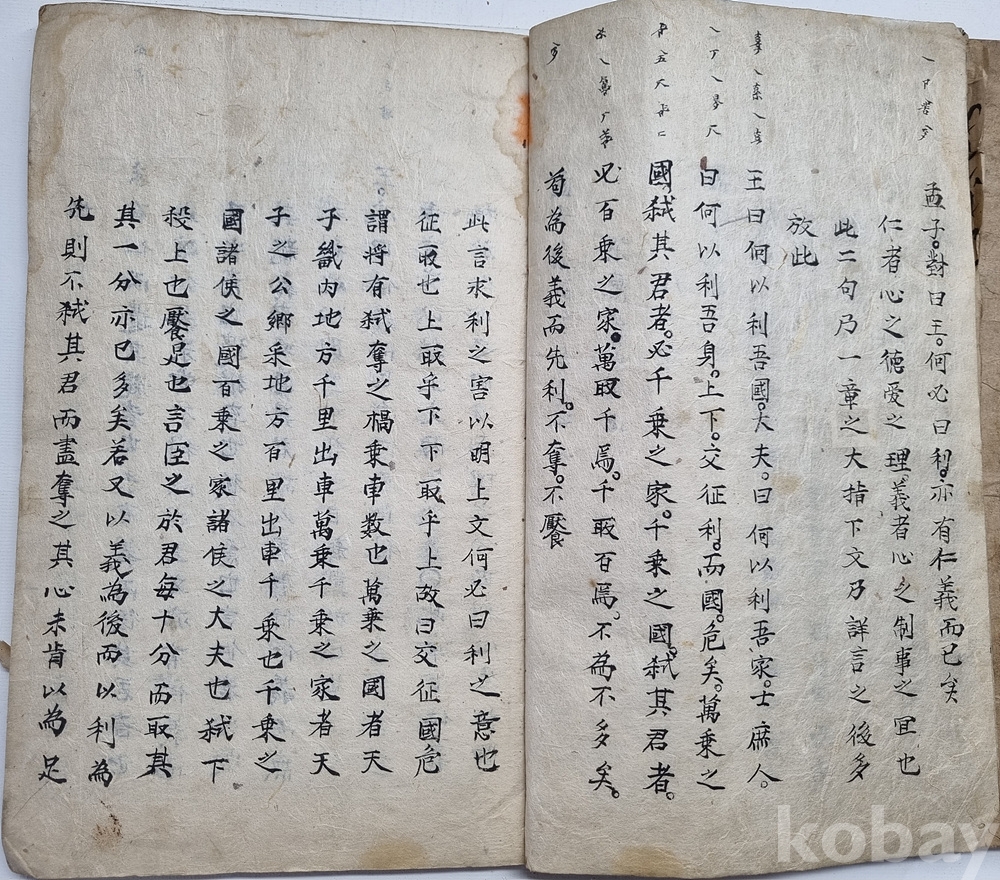 孟子。對曰王。何必曰利。亦有仁義而已矣
仁者心之德愛之理義者心之制事之宜也
此二句乃一章之大指下文乃詳言之後多
放此
王曰何以利吾國。大夫。曰何以利吾家。士庶人。
曰何以利吾身。上下。交征利。而國。危矣。萬乘之
國弑其君者。必千乘之家。千乘之國。弑其君者。
必百乘之家。萬取千焉。千取百焉。不為不多矣。
苟為後義而先利。不奪。不饜
此言求利之害以明上文何必曰利之意也
征取也上取乎下下取乎上故曰交征國危
謂將有弑奪之禍乘車数也萬乘之國者天
子畿内地方千里出車萬乘千乘之家者天
子之公卿采地方百里出車千乘也千乘之
國諸侯之國百乘之家諸侯之大夫也弑下
殺上也饜足也言臣之於君每十分而取其
其一分亦已多矣若又以義為後而以利為
先則不弑其君而盡奪之其心未肯以為足
kobay